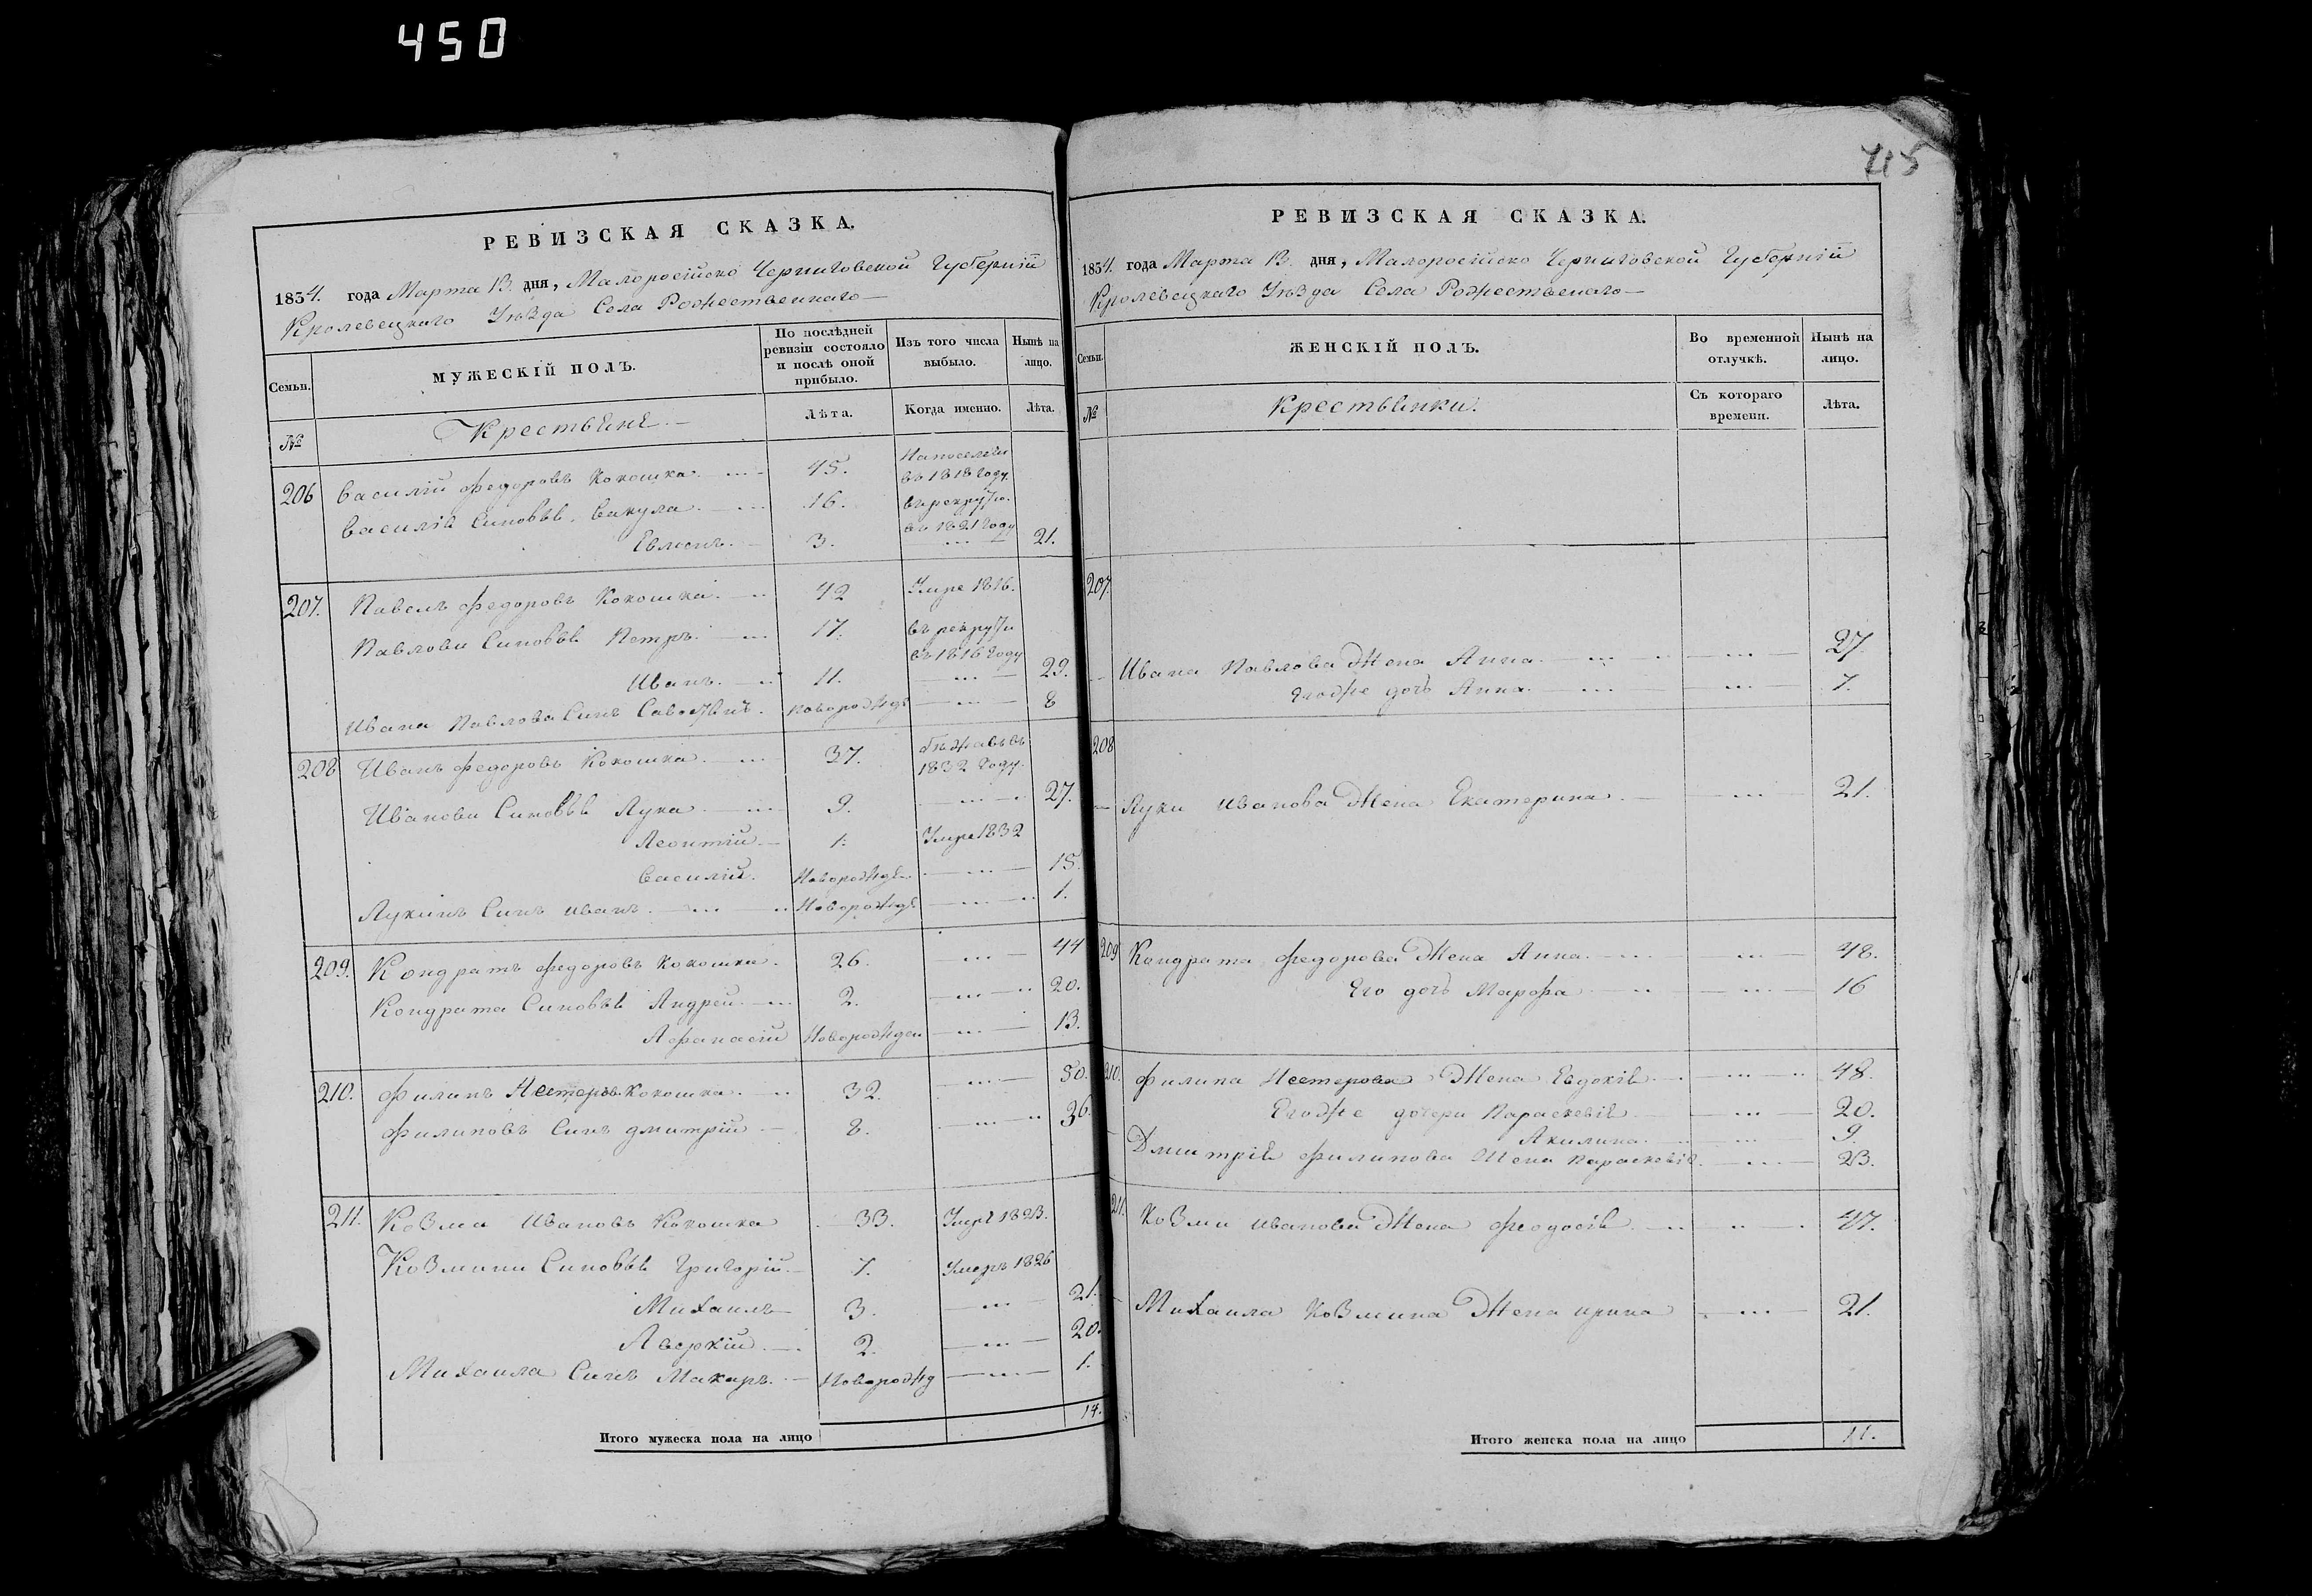 450
415
РЕВИЗСКАЯ СКАЗКА.
1834. года Марта 13. дня, Малоросійско Черниговской Губерніи
Кролевецкаго Уѣзда Села Рождественнаго
Семьи.
МУЖЕСКІЙ ПОЛЪ.
По послѣдней ревизіи состояло и послѣ оной прибыло.
Изъ того числа выбыло.
Нынѣ на лицо.
№
Крестьяне
Лѣта.
Когда именно.
Лѣта.
206 Василій Федоровъ Кокошка 45. На поселеніи въ 1818 году.
Василія Синовья Вакула 16. в рекруты въ 1821 году
Евменъ 3. 21.
207. Павелъ Федоровъ Кокошка 42 Умре 1816.
Павлови Синовья Петръ. 17. въ рекруты въ 1816 году
Иванъ. 11. 29.
Ивана Павлова Синъ новорожд 8
208 Иванъ Федоровъ Кокошка 37. бѣжавъ въ 1832 году.
Иванови Синовья Лука 9. 27.
Леонтій 1. Умре 1832
Василій. Новорожде. 15.
Лукинъ Синъ Иванъ. Новорожд 1.
209. Кондратъ Федоровъ Кокошка. 26. 44
Кондрата Синовья Андрей 2. 20.
Афанасій Новорожден 13.
210. Филипъ Нестеровъ Кокошка 32. 50.
Филиповъ Синъ Дмитрій 8. 26.
211. Козма Ивановъ Кокошка 33. Умре 1823.
Козмини Синовья Григорій. 7. Умеръ 1826
Михаилъ 3. 21.
Аверкій 2. 20.
Михаила Синъ Макаръ. Новорожд 1.
Итого мужеска пола на лицо 14.
РЕВИЗСКАЯ СКАЗКА.
1834. года Марта 13. дня, Малоросійско Черниговской Губерніи
Кролевецкаго Уѣзда Села Рождественаго
Семьи.
ЖЕНСКІЙ ПОЛЪ.
Во временной отлучкѣ.
Нынѣ на лицо.
№
Крестьянки.
Съ котораго времени.
Лѣта.
207.
Ивана Павлова Жена Анна. 27.
Егоже дочь Анна. 7.
208
Луки Иванова Жена Екатерина. 21.
209 Кондрата Федорова Жена Анна. 48.
Его дочь Марфа 16
210. Филипа Нестерова Жена Евдокія 48.
Егоже дочери Параскевія 20.
Акилина. 9.
Дмитрія Филипова Жена Параскевія. 23.
211. Козми Иванова Жена Феодосія 47.
Михаила Козмина Жена Ирина 21.
Итого женска пола на лицо 11.